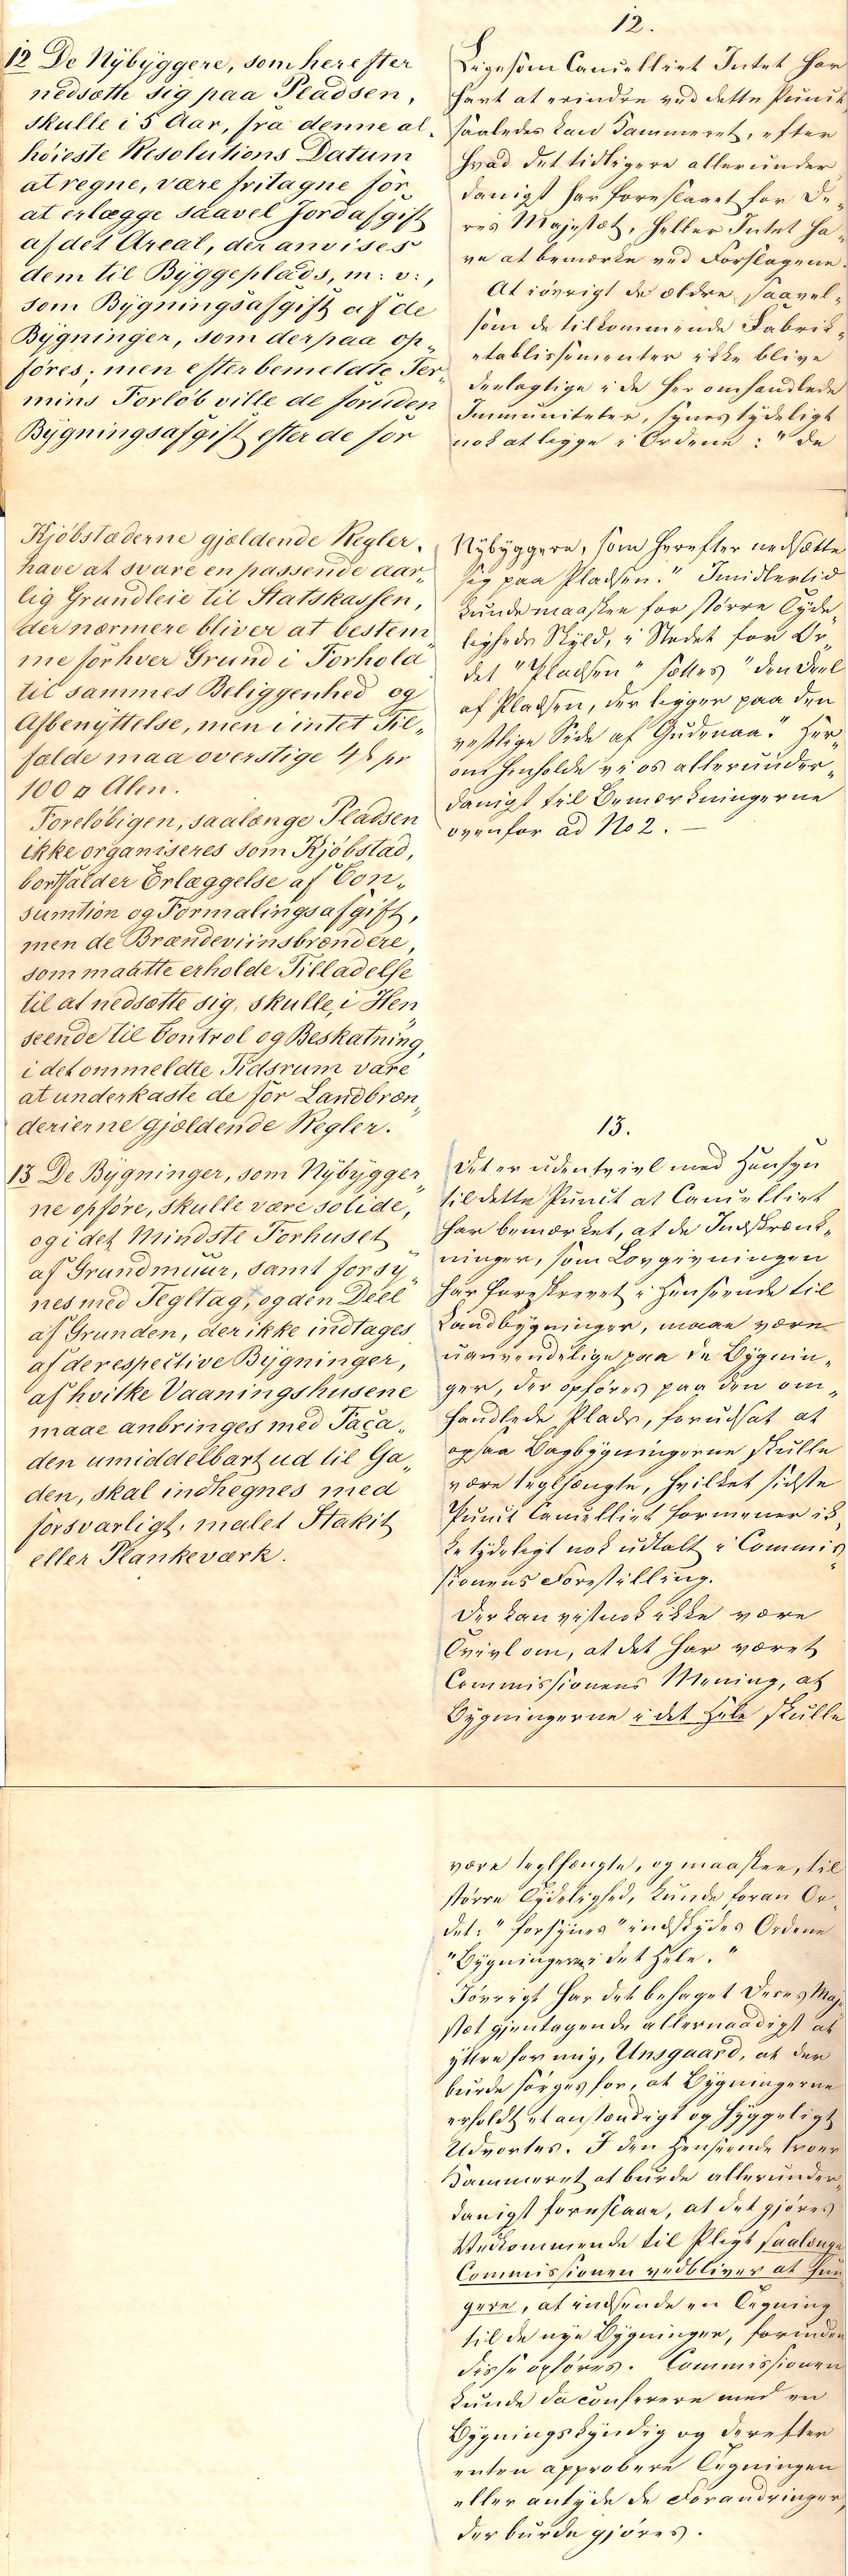 12 De Nÿbÿggere, som herefter
nedsætte sig paa Pladsen,
skulle i 5 Aar, fra denne al„
høieste Resolutions Datum
at regne, være fritagne for
at erlægge saavel Jordafgift
af det Areal, der anvises
dem til Bÿggeplads, m: v:,
som Bÿgningsafgift af de
Bÿgninger, som derpaa op„
føres; men efter bemeldte Ter„
mins Forløb ville de foruden
Bÿgningsafgift efter de for
Kjøbstæderne gjældende Regler,
have at svare en passende aar„
lig Grundleie til Statskassen,
der nærmere bliver at bestem„
me for hver Grund i Forhold
til sammes Beliggenhed og
Afbenÿttelse, men i intet Til„
fælde maa overstige 4 pr
100 □ Alen.
Foreløbigen, saalænge Pladsen
ikke organiseres som Kjøbstad,
bortfalder Erlæggelse af Con„
sumtion og Formalingsafgift,
men de Brændeviinsbrændere,
som maatte erholde Tilladelse
til at nedsætte sig, skulle, i Hen„
seende til Control og Beskatning,
i det ommeldte Tidsrum være
at underkaste de for Landbræn„
derierne gjældende Regler.
13 De Bÿgninger, som Nÿbÿgger„
ne opføre, skulle være solide,
og i det Mindste Forhuset
af Grundmuur, samt forsÿ„
nes med Tegltag, og den Deel
af Grunden, der ikke indtages
af de respective Bÿgninger,
af hvilke Vaaningshusene
maae anbringes med Faça„
den umiddelbart ud til Ga„
den, skal indhegnes med
forsvarligt, malet Stakit
eller Plankeværk.
12.
Ligesom Cancelliet Intet har
havt at erindre ved dette Punct,
saaledes kan Kammeret, efter
hvad det tidligere allerunder„
danigst har foreslaaet for De„
res Majestæt, heller Intet ha„
ve at bemærke ved Forslagene.
At iøvrigt de ældre saavel„
som de tilkommende Fabrik„
etablissementer ikke blive
deelagtige i de her omhandlede
Immuniteter, synes tydeligt
nok at ligge i Ordene: "de
Nÿbÿggere, som herefter nedsætte
sig paa Pladsen." Imidlertid
kunde maaskee for større Tyde„
ligheds Skyld, i Stedet for Or„
det "Pladsen" sættes "den Deel
af Pladsen, der ligger paa den
vestlige Side af Gudenaa." Her„
om henholde vi os allerunder„
danigst til Bemærkningerne
ovenfor ad No 2. —
13.
Det er udentvivl med Hensyn
til dette Punct at Cancelliet
har bemærket, at de Indskrænk„
ninger, som Lovgivningen
har foreskrevet i Henseende til
Landbygninger, maae være
uanvendelige paa de Bygnin„
ger, der opføres paa den om„
handlede Plads, forudsat at
ogsaa Bagbygningerne skulle
være teglhængte, hvilket sidste
Punct Cancelliet formener ik„
ke tydeligt nok udtalt i Commis„
sionens Forestilling.
Der kan vistnok ikke være
Tvivl om, at det har været
Commissionens Mening, at
Bygningerne i det Hele skulle
være teglhængte, og maaskee, til
større Tydelighed, kunde foran Or„
det: "forsynes" indskydes Ordene
"Bygningerne i det Hele."
Iøvrigt har det behaget Deres Maje„
stæt gjentagende allernaadigst at
yttre for mig, Unsgaard, at der
burde sørges for, at Bygningerne
erholdt et anstændigt og hyggeligt
Udvortes. I den Henseende troer
Kammeret at burde allerunder„
danigst foreslaae, at det gjøres
Vedkommende til Pligt saalænge
Commissionen vedbliver at fun„
gere, at indsende en Tegning
til de nye Bygninger, forinden
disse opføres. Commissionen
kunde da conferere med en
Bygningskyndig og derefter
enten approbere Tegningen
eller antyde de Forandringer,
der burde gjøres.